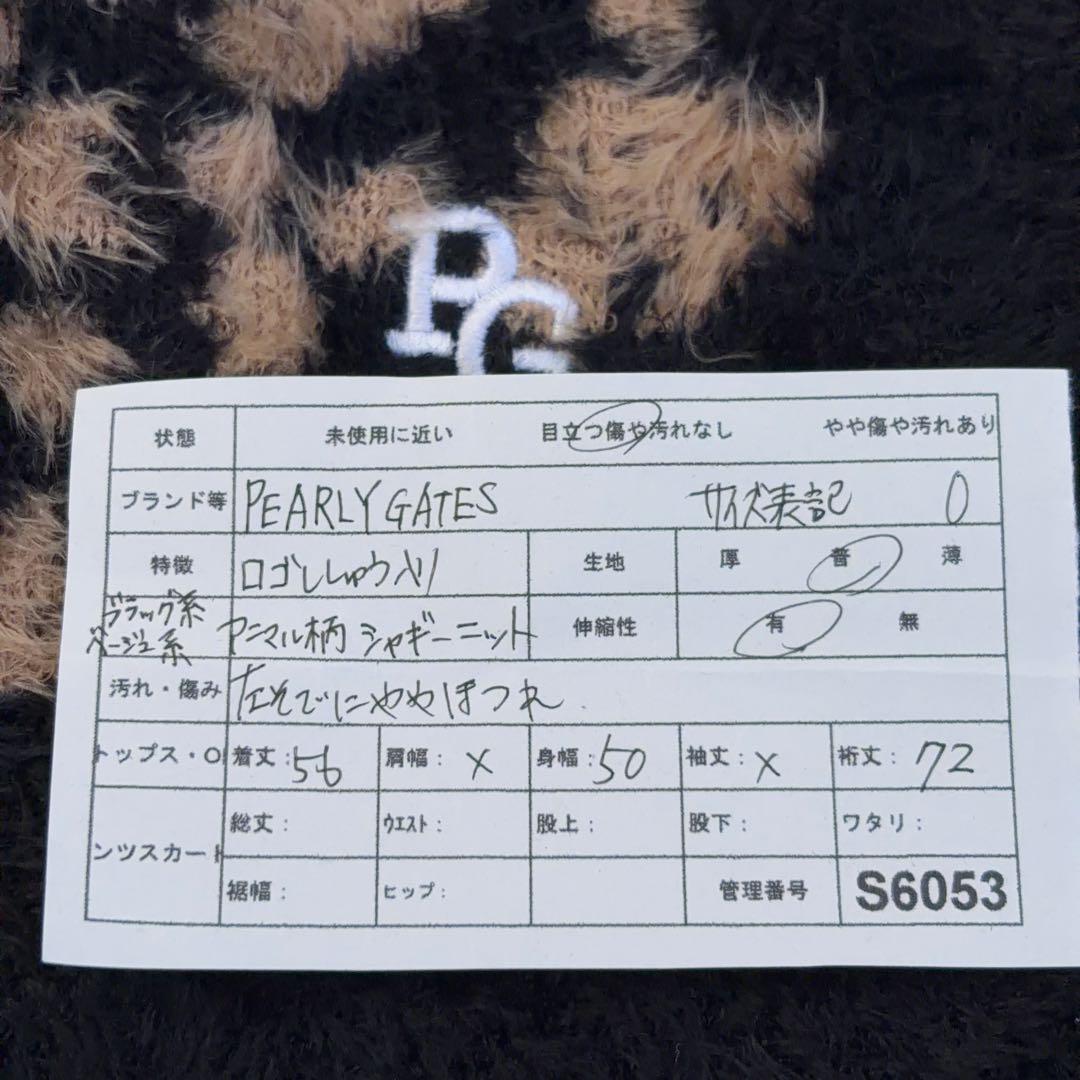 PG
状態 未使用に近い 目立つ傷や汚れなし やや傷や汚れあり
ブランド等 PEARLY GATES サイズ表記 0
特徴 ロゴししゅう入り 生地 厚 普 薄
ブラック系
ベージュ系 アニマル柄 シャギーニット 伸縮性 有 無
汚れ・傷み 左そでにややほつれ
トップス・O 着丈: 56 肩幅: X 身幅: 50 袖丈: X 裄丈: 72
ンツスカート 総丈: ウエスト: 股上: 股下: ワタリ:
裾幅: ヒップ: 管理番号 S6053